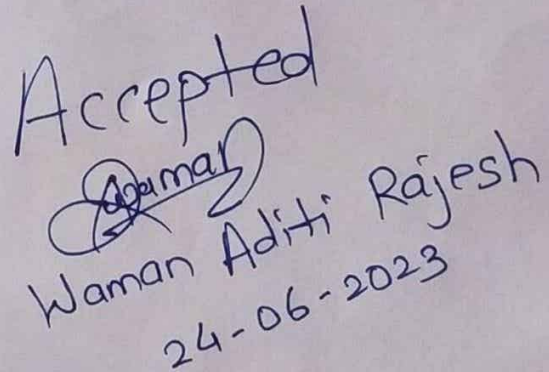 Accepted
Waman Aditi Rajesh
24-06-2023